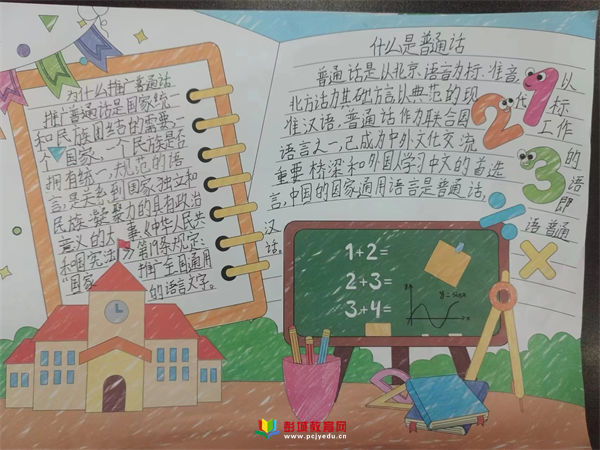 为什么推广普通话
推广普通话是国家统一
和民族团结的需要,一
个国家、一个民族是否
拥有统一、规范的语
言,是关系到国家独立和
民族凝聚力的具有政治
意义的大事。《中华人民共
和国宪法》第19条规定:
"国家推广全国通用
的语言文字。
什么是普通话
普通话是以北京语音为标准音,以
北方话为基础方言,以典范的现代
准汉语,普通话作为联合国工作
语言之一,已成为中外文化交流的
重要桥梁和外国人学习中文的首选语
言,中国的国家通用语言是普通话,即
汉语普通
话。
标
1
2
3
1+2=
2+3=
3+4=
y=sinx
彭城教育网
www.pcjyedu.cn